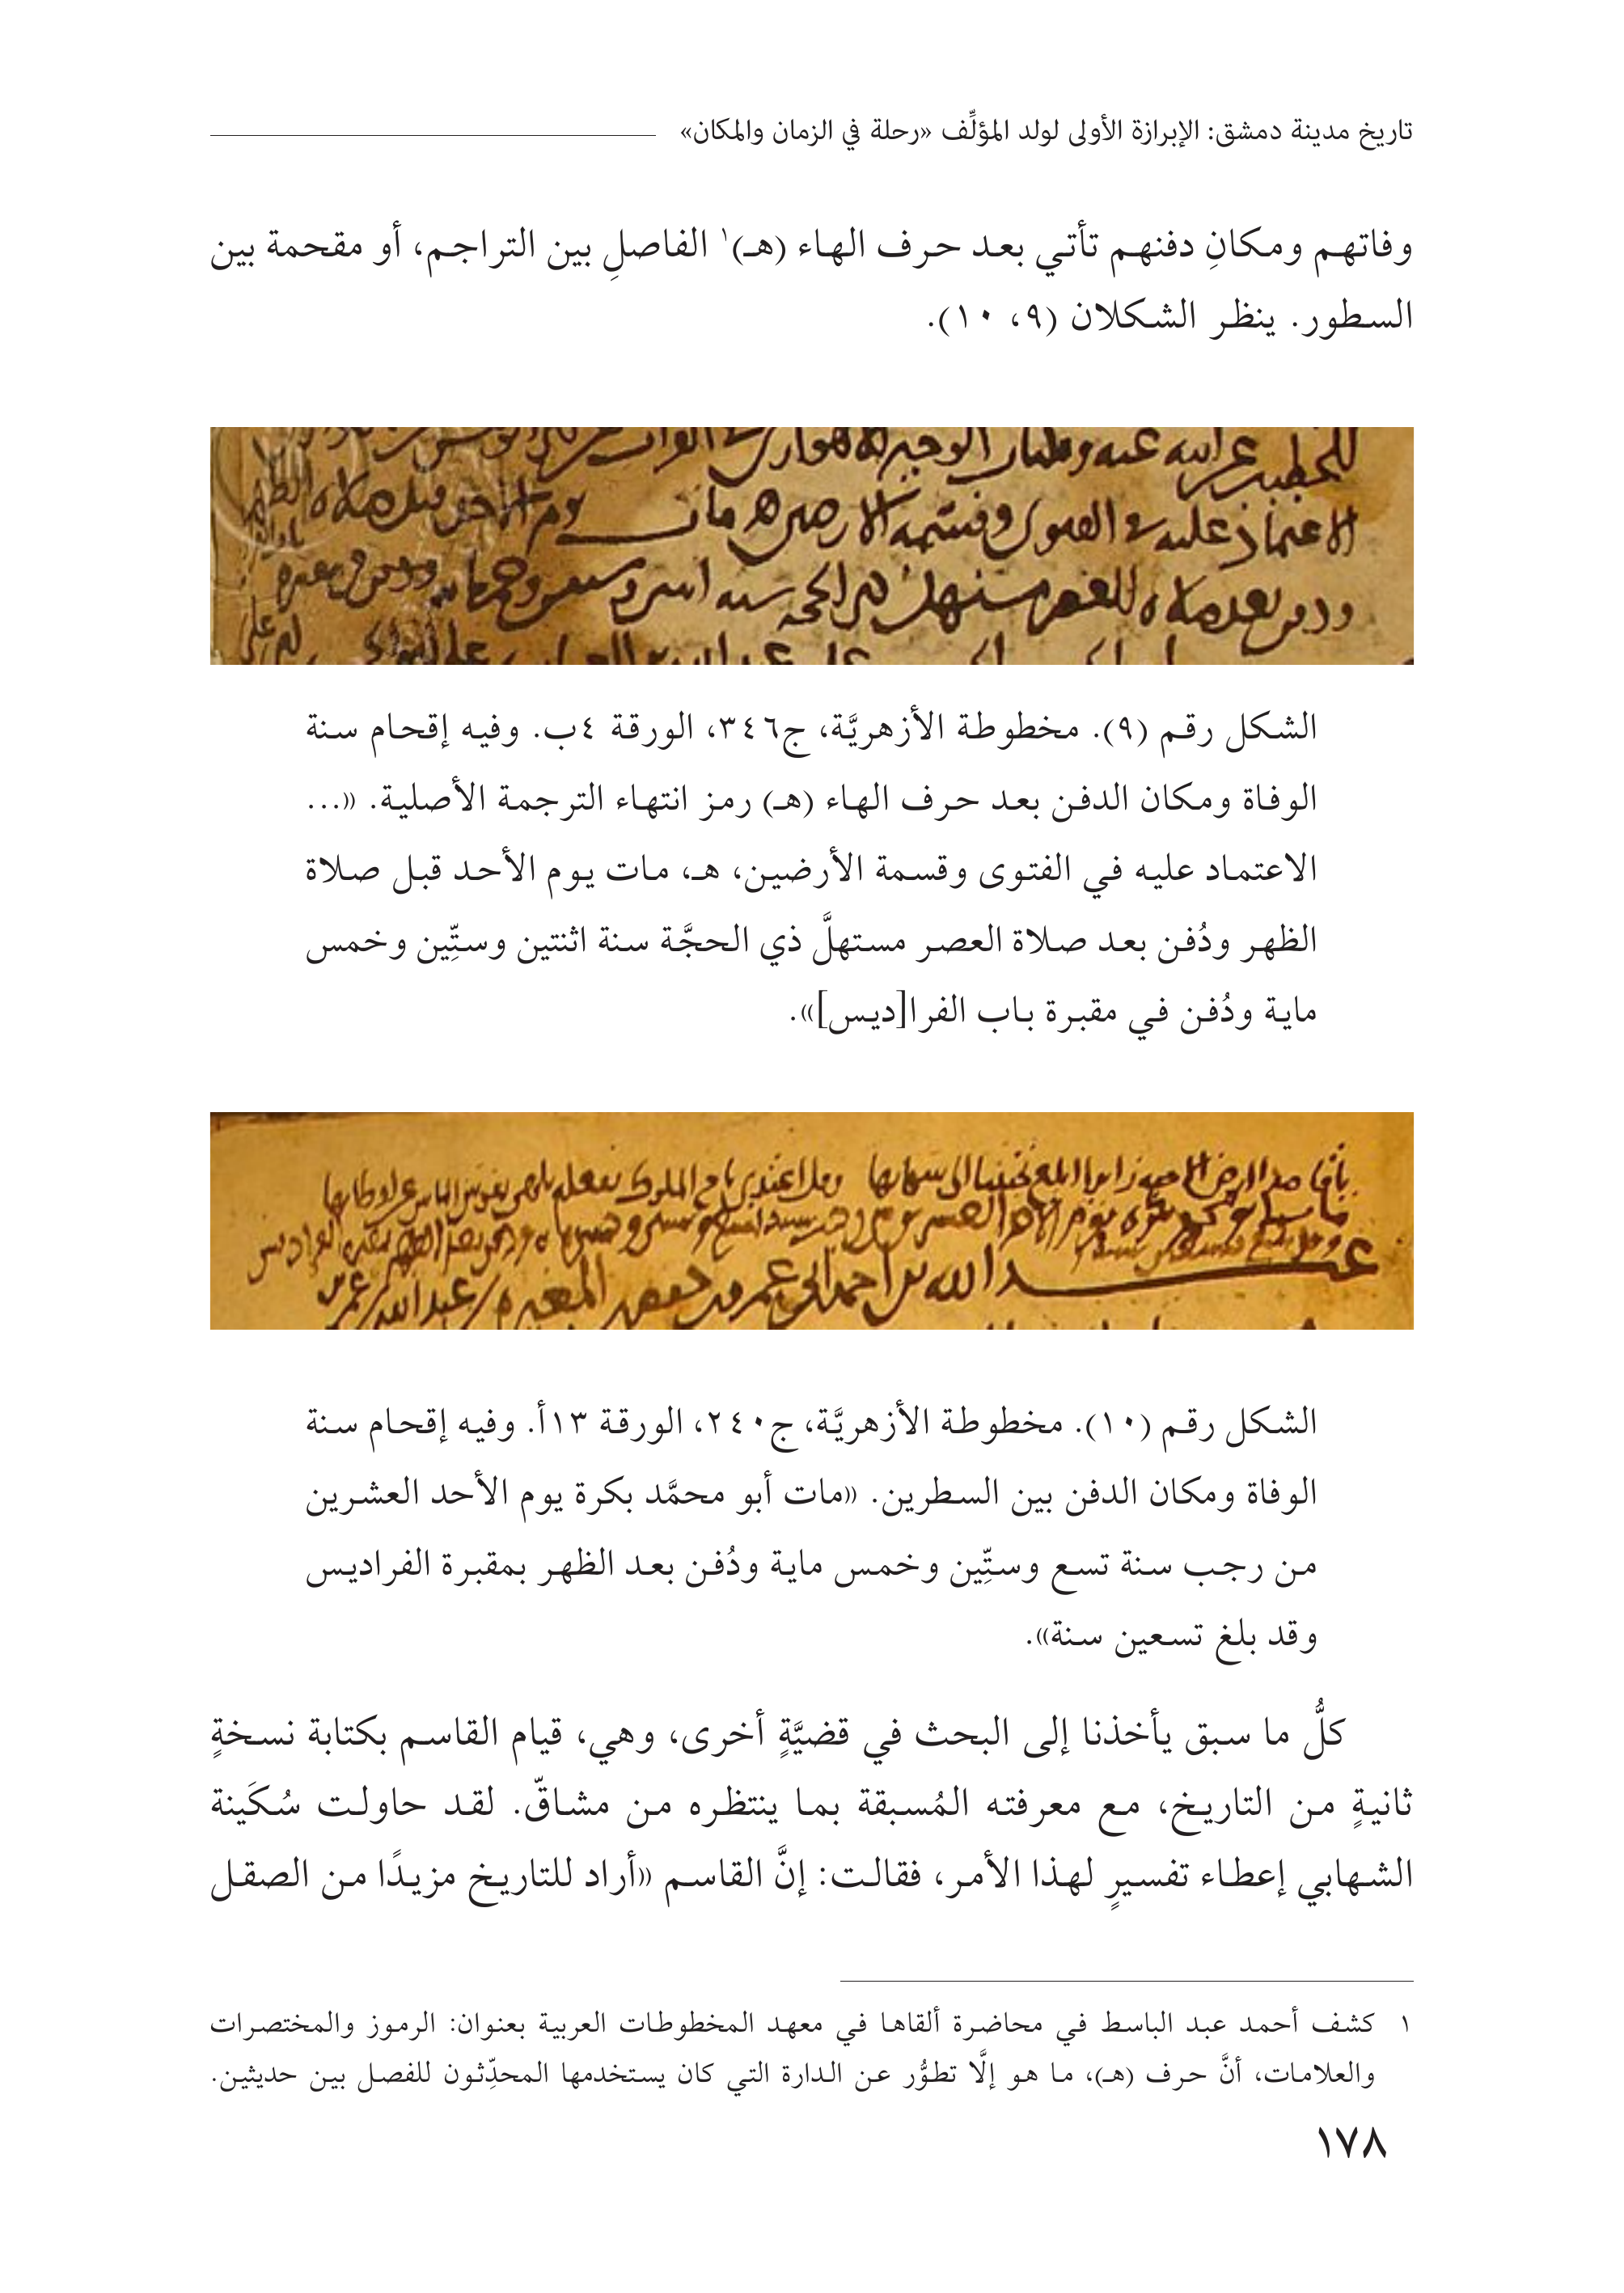 تاريخ مدينة دمشق: الإبرازة الأولى لولد المؤلِّف «رحلة في الزمان والمكان»
وفاتهم ومكانِ دفنهم تأتي بعد حرف الهاء (هـ)١ الفاصلِ بين التراجم، أو مقحمة بين
السطور. ينظر الشكلان (٩، ١٠).
الاعتماد عليه في الفتوى وقسمة الارضين هـ مات يوم الاحد قبل صلاة الظهر
ودفن بعد صلاة العصر مستهل ذي الحجة سنه
الشكل رقم (٩). مخطوطة الأزهريَّة، ج٣٤٦، الورقة ٤ب. وفيه إقحام سنة
الوفاة ومكان الدفن بعد حرف الهاء (هـ) رمز انتهاء الترجمة الأصلية. «...
الاعتماد عليه في الفتوى وقسمة الأرضين، هـ، مات يوم الأحد قبل صلاة
الظهر ودُفن بعد صلاة العصر مستهلَّ ذي الحجَّة سنة اثنتين وستِّين وخمس
ماية ودُفن في مقبرة باب الفرا[ديس]».
عبد الله بن احمد
الشكل رقم (١٠). مخطوطة الأزهريَّة، ج٢٤٠، الورقة ١٣أ. وفيه إقحام سنة
الوفاة ومكان الدفن بين السطرين. «مات أبو محمَّد بكرة يوم الأحد العشرين
من رجب سنة تسع وستِّين وخمس ماية ودُفن بعد الظهر بمقبرة الفراديس
وقد بلغ تسعين سنة».
كلُّ ما سبق يأخذنا إلى البحث في قضيَّةٍ أخرى، وهي، قيام القاسم بكتابة نسخةٍ
ثانيةٍ من التاريخ، مع معرفته المُسبقة بما ينتظره من مشاقّ. لقد حاولت سُكَينة
الشهابي إعطاء تفسيرٍ لهذا الأمر، فقالت: إنَّ القاسم «أراد للتاريخ مزيدًا من الصقل
١ كشف أحمد عبد الباسط في محاضرة ألقاها في معهد المخطوطات العربية بعنوان: الرموز والمختصرات
والعلامات، أنَّ حرف (هـ)، ما هو إلَّا تطوُّر عن الدارة التي كان يستخدمها المحدِّثون للفصل بين حديثين.
١٧٨